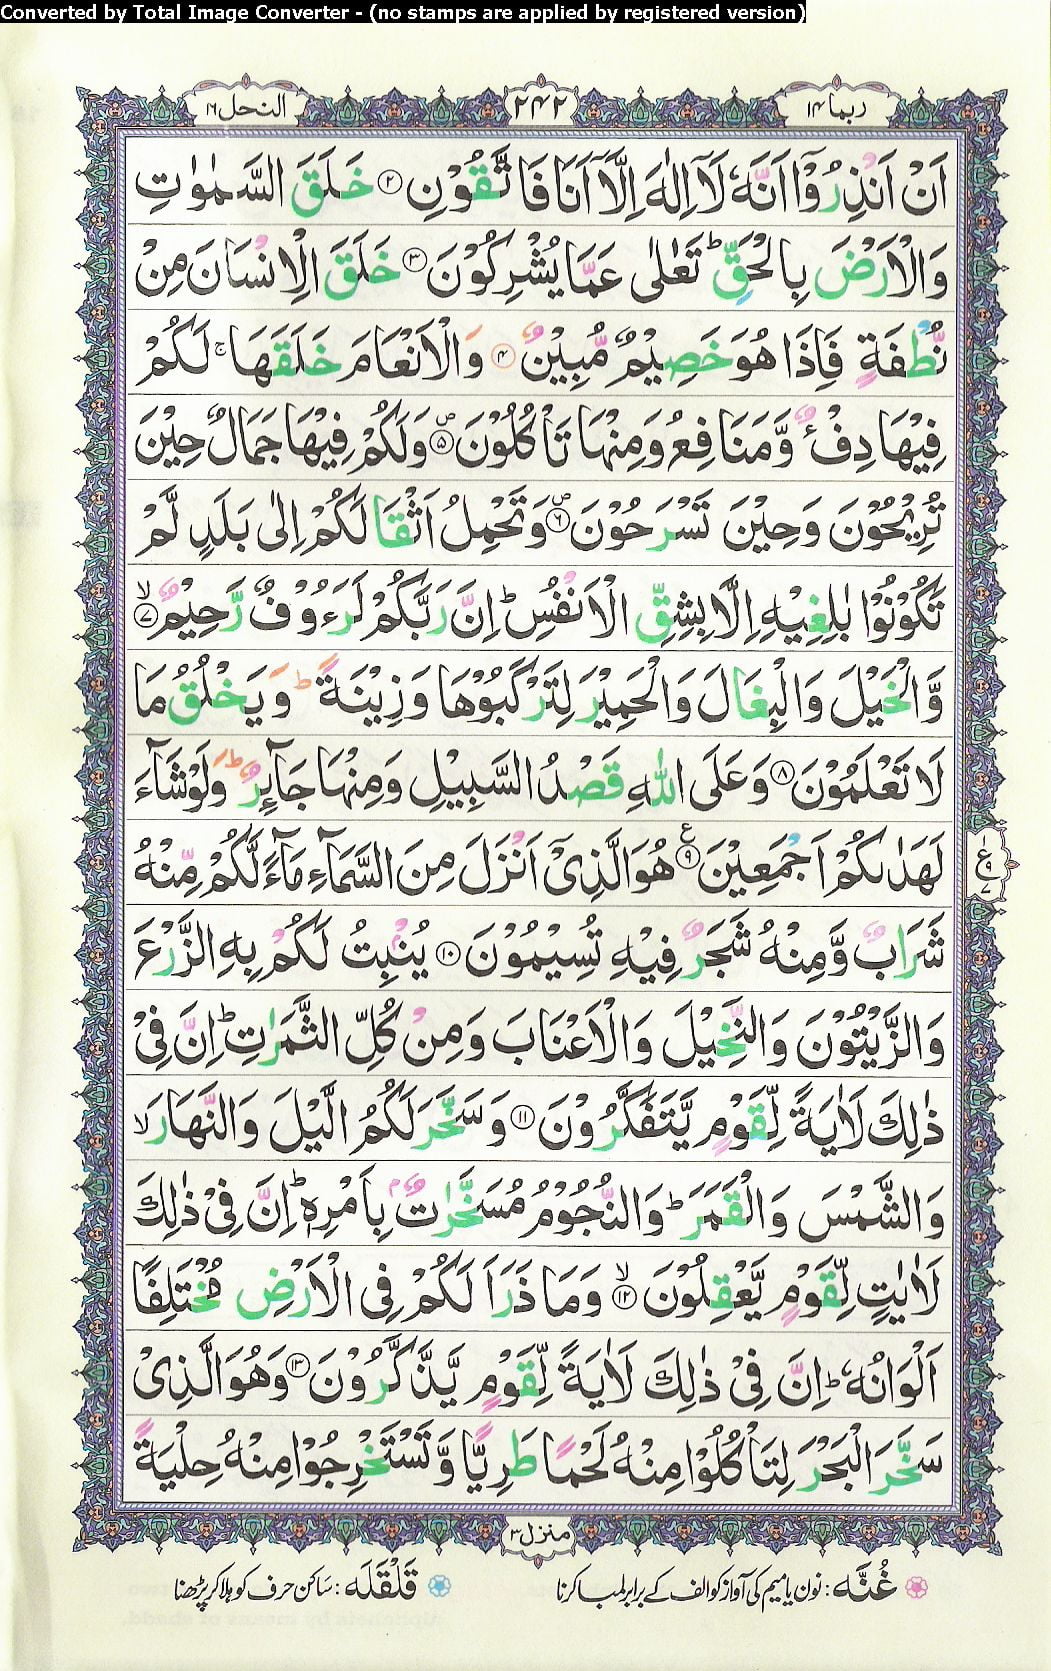 Converted by Total Image Converter - (no stamps are applied by registered version)
ربما ١٤ ٢٤٢ النحل ١٦
اَنْ اَنْذِرُوْۤا اَنَّهٗ لَاۤ اِلٰهَ اِلَّاۤ اَنَا فَاتَّقُوْنِ ۝٢ خَلَقَ السَّمٰوٰتِ
وَالْاَرْضَ بِالْحَقِّ ؕ تَعٰلٰى عَمَّا يُشْرِكُوْنَ ۝٣ خَلَقَ الْاِنْسَانَ مِنْ
نُّطْفَةٍ فَاِذَا هُوَ خَصِيْمٌ مُّبِيْنٌ ۝٤ وَالْاَنْعَامَ خَلَقَهَا ۚ لَكُمْ
فِيْهَا دِفْءٌ وَّمَنَافِعُ وَمِنْهَا تَاْكُلُوْنَ ۝٥ وَلَكُمْ فِيْهَا جَمَالٌ حِيْنَ
تُرِيْحُوْنَ وَحِيْنَ تَسْرَحُوْنَ ۝٦ وَتَحْمِلُ اَثْقَالَكُمْ اِلٰى بَلَدٍ لَّمْ
تَكُوْنُوْا بٰلِغِيْهِ اِلَّا بِشِقِّ الْاَنْفُسِ ؕ اِنَّ رَبَّكُمْ لَرَءُوْفٌ رَّحِيْمٌ ۝٧
وَّالْخَيْلَ وَالْبِغَالَ وَالْحَمِيْرَ لِتَرْكَبُوْهَا وَزِيْنَةً ؕ وَيَخْلُقُ مَا
لَا تَعْلَمُوْنَ ۝٨ وَعَلَى اللّٰهِ قَصْدُ السَّبِيْلِ وَمِنْهَا جَآئِرٌ ؕ وَلَوْ شَآءَ
لَهَدٰىكُمْ اَجْمَعِيْنَ ۝٩ هُوَ الَّذِىْۤ اَنْزَلَ مِنَ السَّمَآءِ مَآءً لَّكُمْ مِّنْهُ
شَرَابٌ وَّمِنْهُ شَجَرٌ فِيْهِ تُسِيْمُوْنَ ۝١٠ يُنْۢبِتُ لَكُمْ بِهِ الزَّرْعَ
وَالزَّيْتُوْنَ وَالنَّخِيْلَ وَالْاَعْنَابَ وَمِنْ كُلِّ الثَّمَرٰتِ ؕ اِنَّ فِىْ
ذٰلِكَ لَاٰيَةً لِّقَوْمٍ يَّتَفَكَّرُوْنَ ۝١١ وَسَخَّرَ لَكُمُ الَّيْلَ وَالنَّهَارَ ۙ
وَالشَّمْسَ وَالْقَمَرَ ؕ وَالنُّجُوْمُ مُسَخَّرٰتٌۢ بِاَمْرِهٖ ؕ اِنَّ فِىْ ذٰلِكَ
لَاٰيٰتٍ لِّقَوْمٍ يَّعْقِلُوْنَ ۝١٢ وَمَا ذَرَاَ لَكُمْ فِى الْاَرْضِ مُخْتَلِفًا
اَلْوَانُهٗ ؕ اِنَّ فِىْ ذٰلِكَ لَاٰيَةً لِّقَوْمٍ يَّذَّكَّرُوْنَ ۝١٣ وَهُوَ الَّذِىْ
سَخَّرَ الْبَحْرَ لِتَاْكُلُوْا مِنْهُ لَحْمًا طَرِيًّا وَّتَسْتَخْرِجُوْا مِنْهُ حِلْيَةً
ع ٩ ٧
منزل ٣
غُنَّه: نون یا میم کی آواز کو الف کے برابر لمبا کرنا قَلْقَلَه: ساکن حرف کو ہلا کر پڑھنا